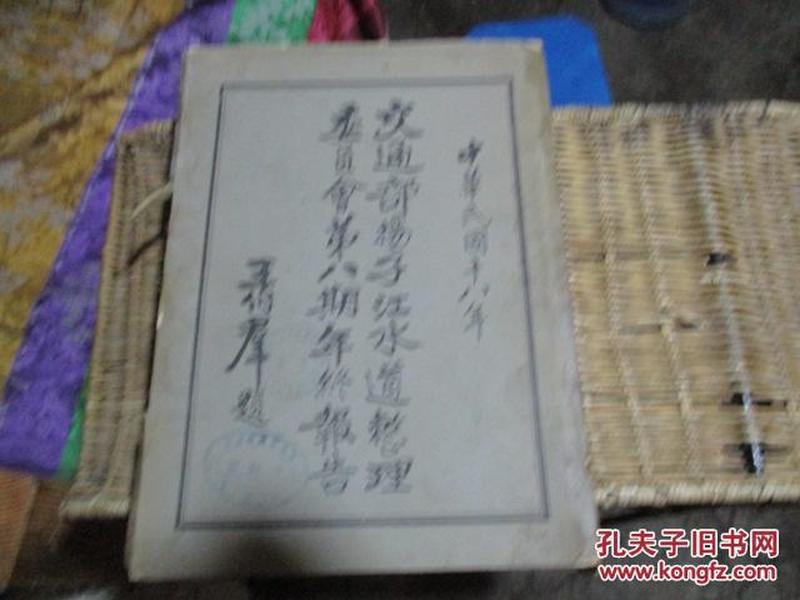 中華民國十八年
交通部揚子江水道整理
委員會第八期年終報告
王伯群題
孔夫子旧书网
www.kongfz.com